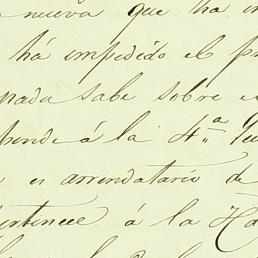 nueva que ha
há impedido el
nada sabe sobre
á la 4.ª
es arrendatario de
á la Ha